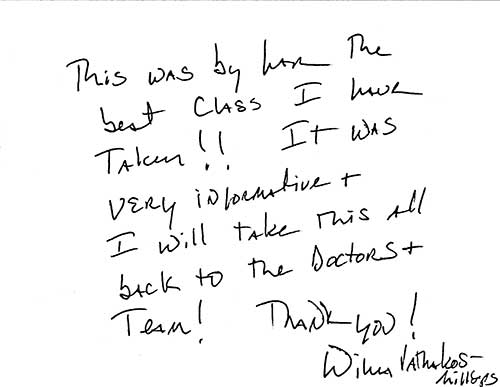 This was by far the
best Class I have
Taken!! It was
very informative +
I will take this all
back to the Doctors +
Team! Thank you!
Wilma